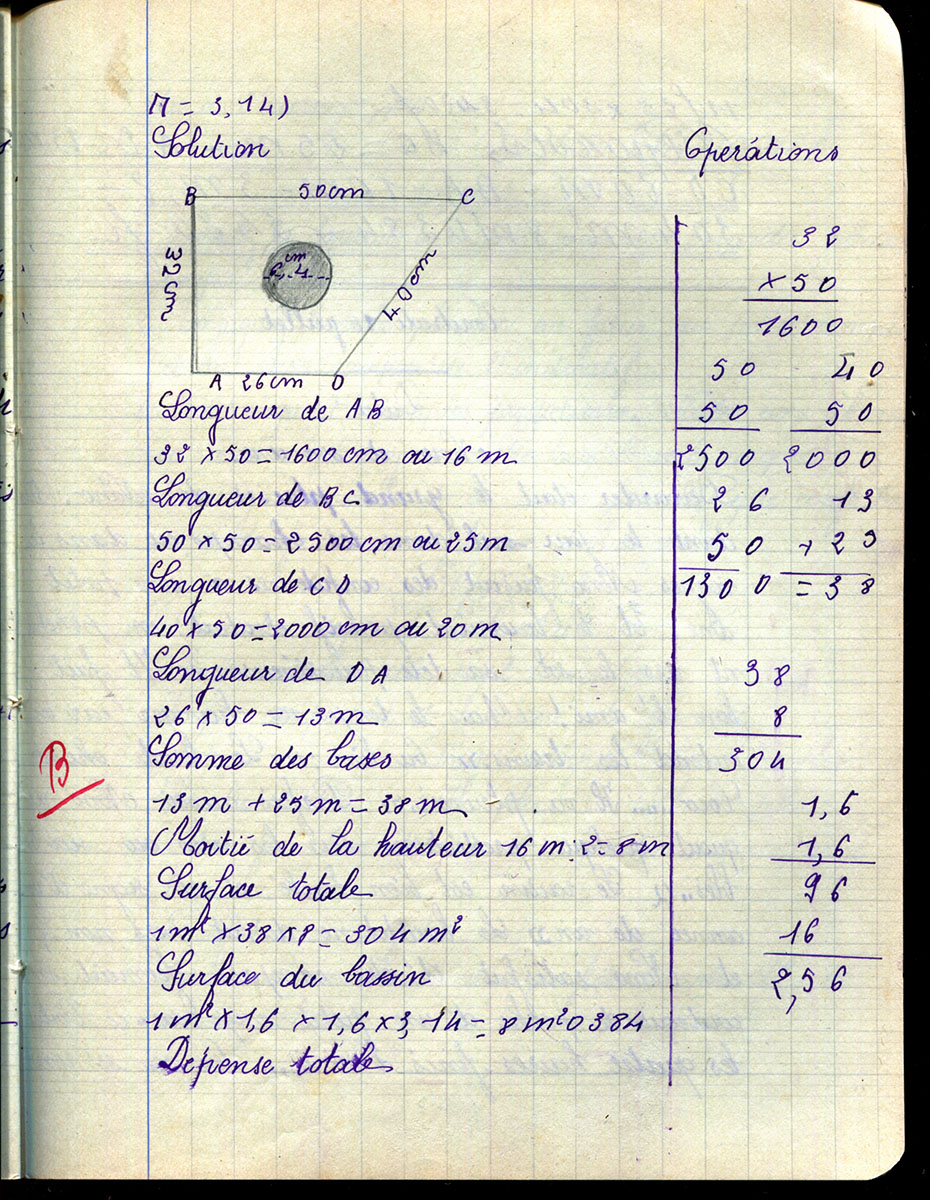 Π = 3,14)
Solution
B 50cm C
32cm
cm
6,4
40cm
A 26cm D
Longueur de AB
32 × 50 = 1600 cm ou 16 m
Longueur de BC
50 × 50 = 2500 cm ou 25m
Longueur de CD
40 × 50 = 2000 cm ou 20m
Longueur de DA
26 × 50 = 13 m
Somme des bases
13 m + 25 m = 38 m
Moitié de la hauteur 16 m : 2 = 8 m
Surface totale
1 m² × 38 × 8 = 304 m²
Surface du bassin
1 m² × 1,6 × 1,6 × 3,14 = 8 m² 0384
Dépense totale
B
Opérations
32
× 50
1600
50 40
50 50
2500 2000
26 13
50 + 25
1300 = 38
38
8
304
1,6
1,6
96
16
2,56